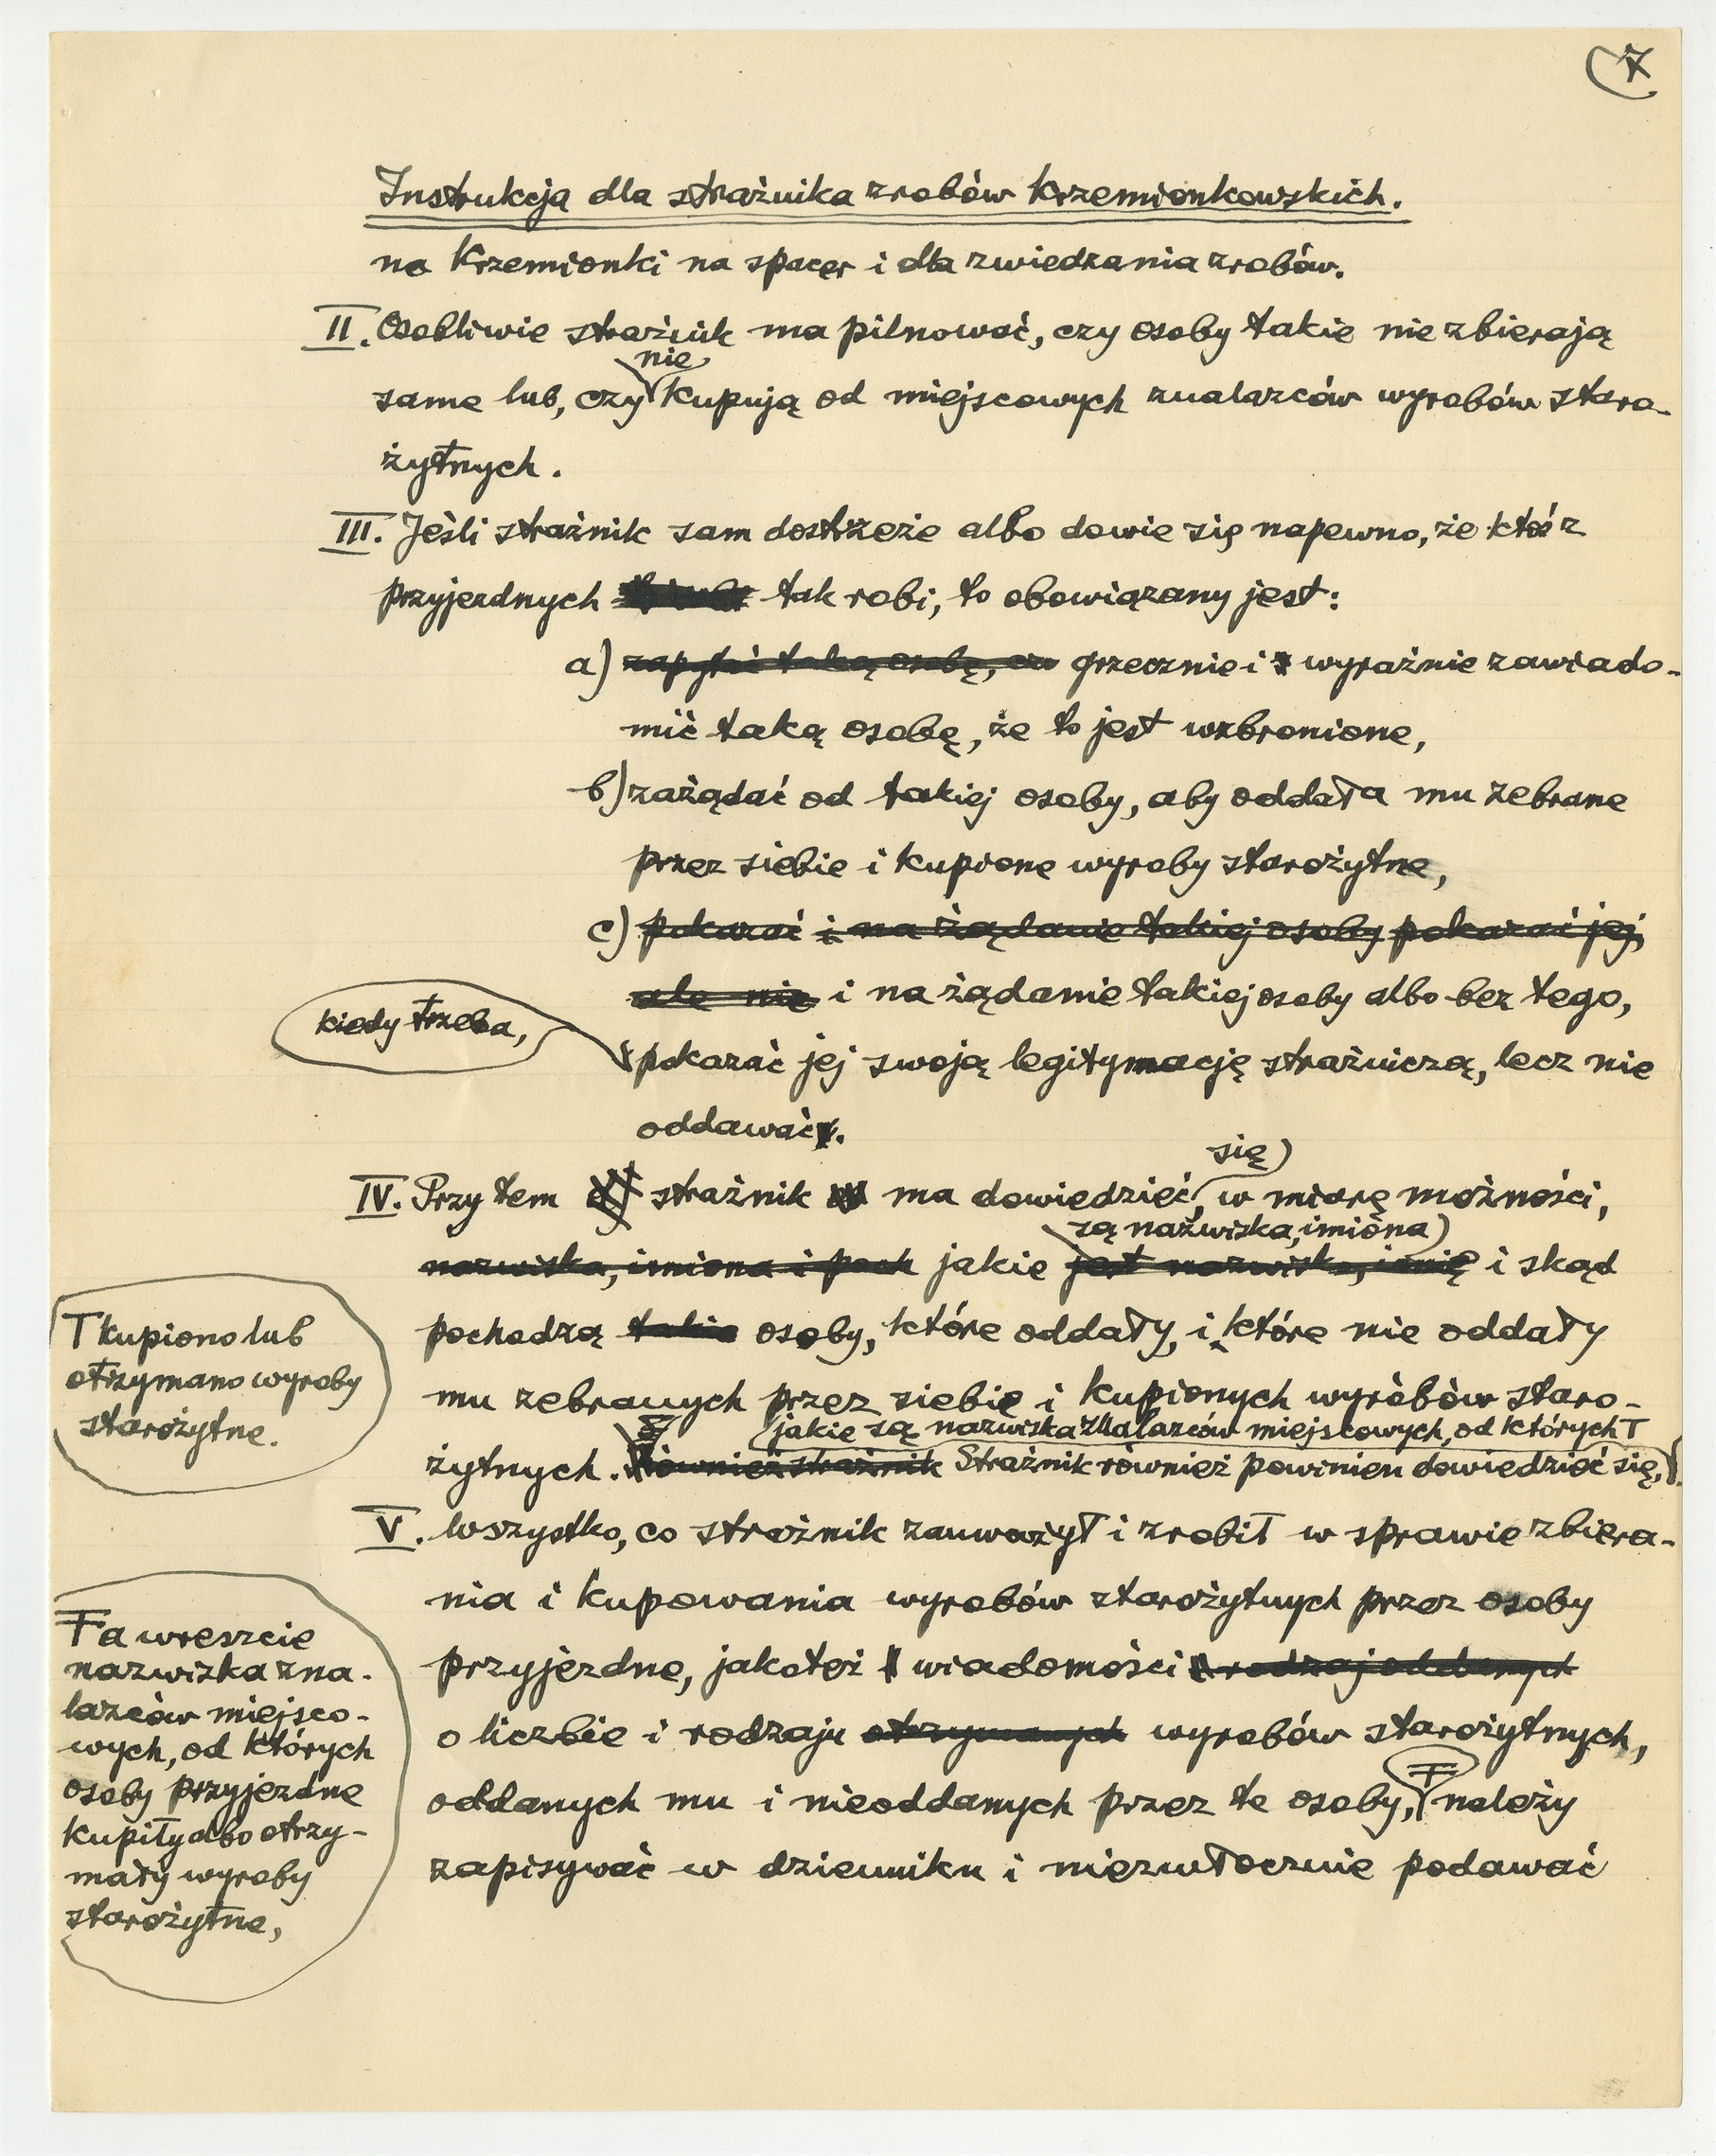 7
Instrukcja dla strażnika zrobów Krzemionkowskich.
na Krzemionki na spacer i dla zwiedzania zrobów.
II. Osobliwie strażnik ma pilnować, czy osoby takie nie zbierają
nie
same lub, czy kupują od miejscowych znalazców wyrobów staro-
żytnych.
III. Jeśli strażnik sam dostrzeże albo dowie się napewno, że ktoś z
przyjezdnych tak robi, to obowiązany jest:
a) zapytać taką osobę, grzecznie i wyraźnie zawiado-
mić taką osobę, że to jest wzbronione,
b) zażądać od takiej osoby, aby oddała mu zebrane
przez siebie i kupione wyroby starożytne,
c) pokazać i na żądanie takiej osoby pokazać jej,
ale nie i na żądanie takiej osoby albo bez tego,
kiedy trzeba,
pokazać jej swoją legitymację strażniczą, lecz nie
oddawać.
się
IV. Przy tem strażnik ma dowiedzieć, w miarę możności,
są nazwiska, imiona
nazwiska, imiona i poch jakie jest nazwisko, imię i skąd
pochodzą takie osoby, które oddały, i które nie oddały
mu zebranych przez siebie i kupionych wyrobów staro-
jakie są nazwiska znalazców miejscowych, od których T
żytnych. Również strażnik Strażnik również powinien dowiedzieć się,
T kupiono lub
otrzymano wyroby
starożytne.
V. Wszystko, co strażnik zauważył i zrobił w sprawie zbiera-
nia i kupowania wyrobów starożytnych przez osoby
przyjezdne, jakoteż wiadomości rodzaj oddanych
o liczbie i rodzaju otrzymanych wyrobów starożytnych,
oddanych mu i nieoddanych przez te osoby, należy
zapisywać w dzienniku i niezwłocznie podawać
a wreszcie
nazwiska zna-
lazców miejsco-
wych, od których
osoby przyjezdne
kupiły albo otrzy-
mały wyroby
starożytne,